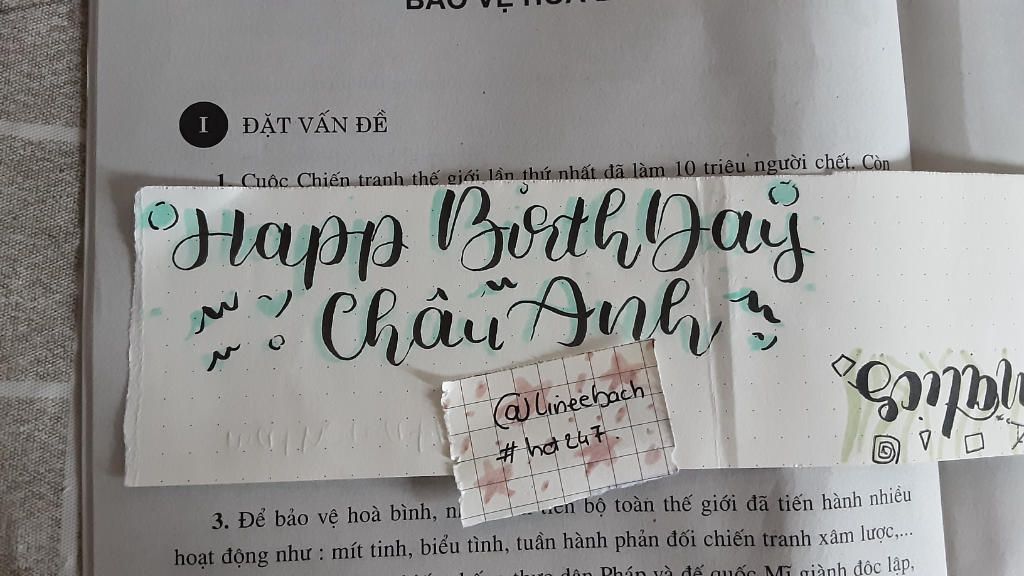 BẢO VỆ HOÀ
I ĐẶT VẤN ĐỀ
1. Cuộc Chiến tranh thế giới lần thứ nhất đã làm 10 triệu người chết. Còn
Happ BirthDay
Châu Anh
@lineebach
#hot247
3. Để bảo vệ hoà bình, bộ toàn thế giới đã tiến hành nhiều
hoạt động như : mít tinh, biểu tình, tuần hành phản đối chiến tranh xâm lược,...
thực dân Pháp và đế quốc Mĩ giành độc lập,